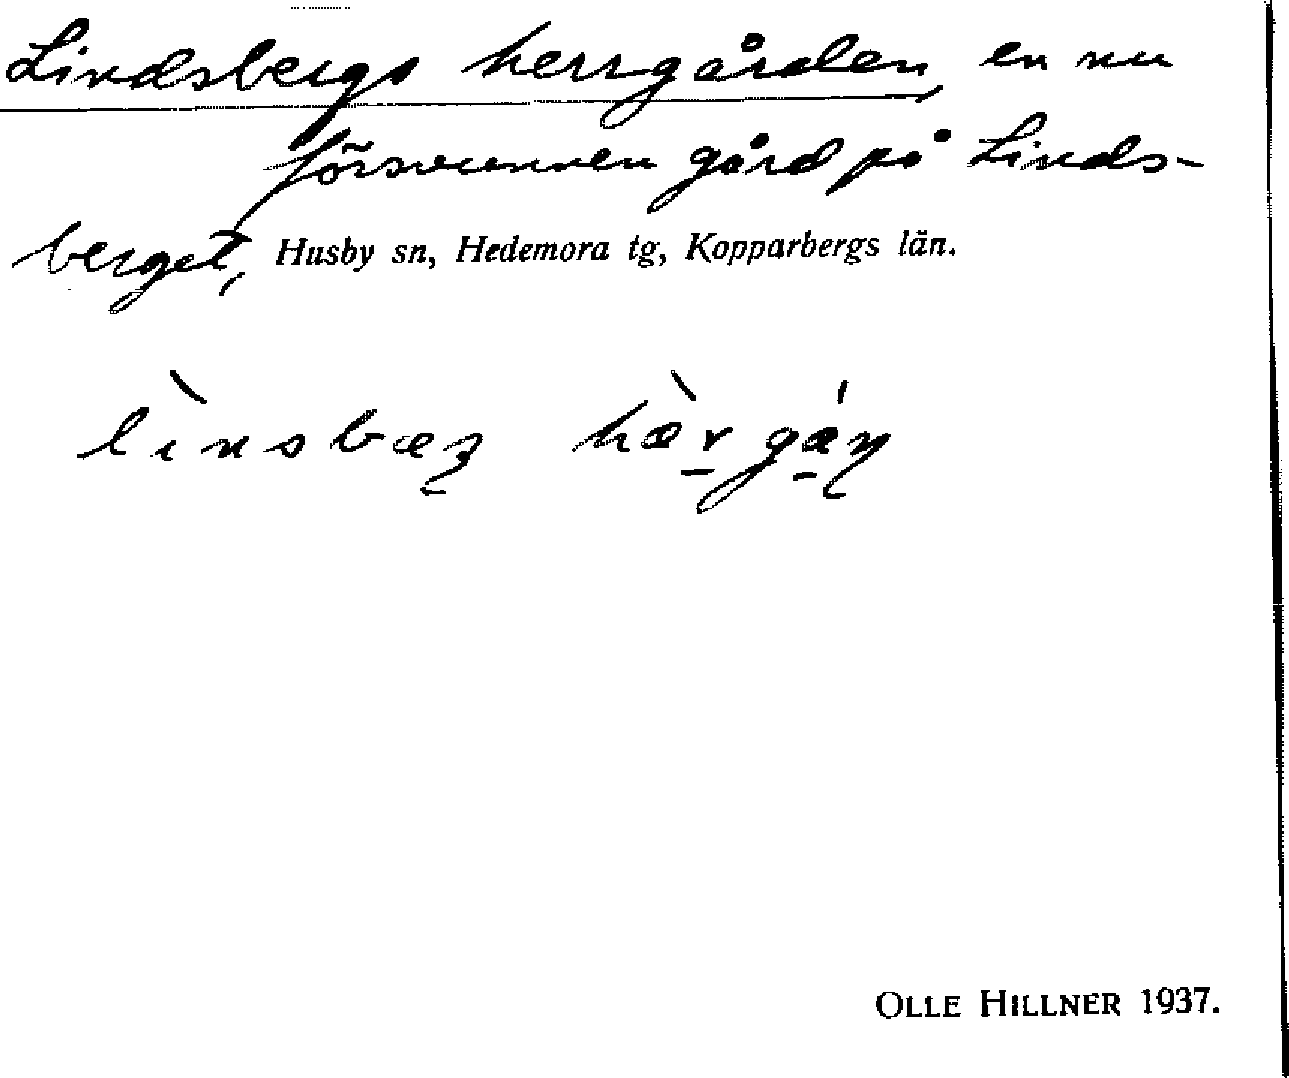 Lindsbergs herrgården, en nu
försvunnen gård på Linds-
berget, Husby sn, Hedemora tg, Kopparbergs län.
OLLE HILLNER 1937.